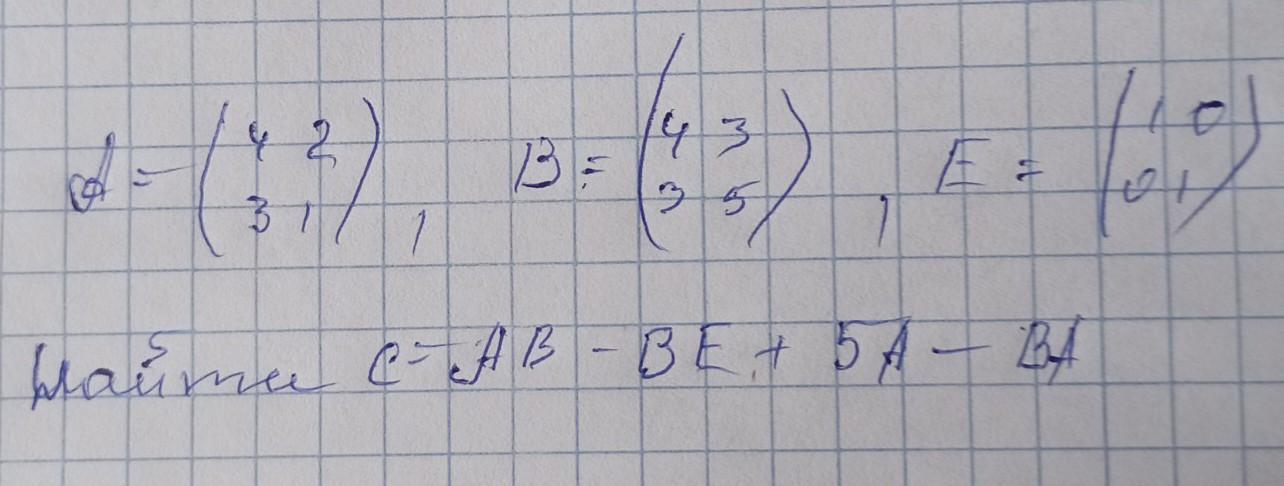 A = (4 2 3 1), B = (4 3 3 5), E = (1 0 0 1)
Найти C = AB - BE + 5A - BA